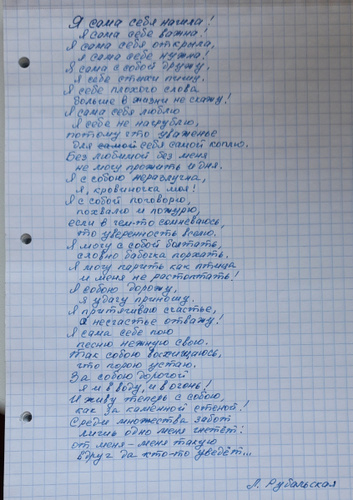 Я сама себя нашла!
Я сама себе важна!
Я сама себя открыла,
я сама себе нужна!
Я сама с собой дружу,
я себе стихи пишу.
Я себе плохого слова
больше в жизни не скажу!
Я сама себя люблю
Я себе не нагрублю,
потому что уваженье
для самой себя самой коплю.
Без любимой без меня
не могу прожить и дня.
Я с собою неразлучна,
я, кровиночка моя!
Я с собой поговорю,
похвалю и пожурю,
если в чем-то сомневаюсь,
то уверенность вселю.
Я могу с собой болтать,
словно бабочка порхать.
Я могу парить как птица
и меня не растоптать!
Я собою дорожу,
я удачу приношу.
Я притягиваю счастье,
а несчастье отважу!
Я сама себе пою
песню нежную свою.
Так собою восхищаюсь,
что порою устаю.
За собою дорогой
я и в воду, и в огонь!
И живу теперь с собою,
как за каменной стеной!
Среди множества забот
лишь одно меня гнетёт:
от меня – меня такую
вдруг да кто-то уведёт...
Л. Рубальская